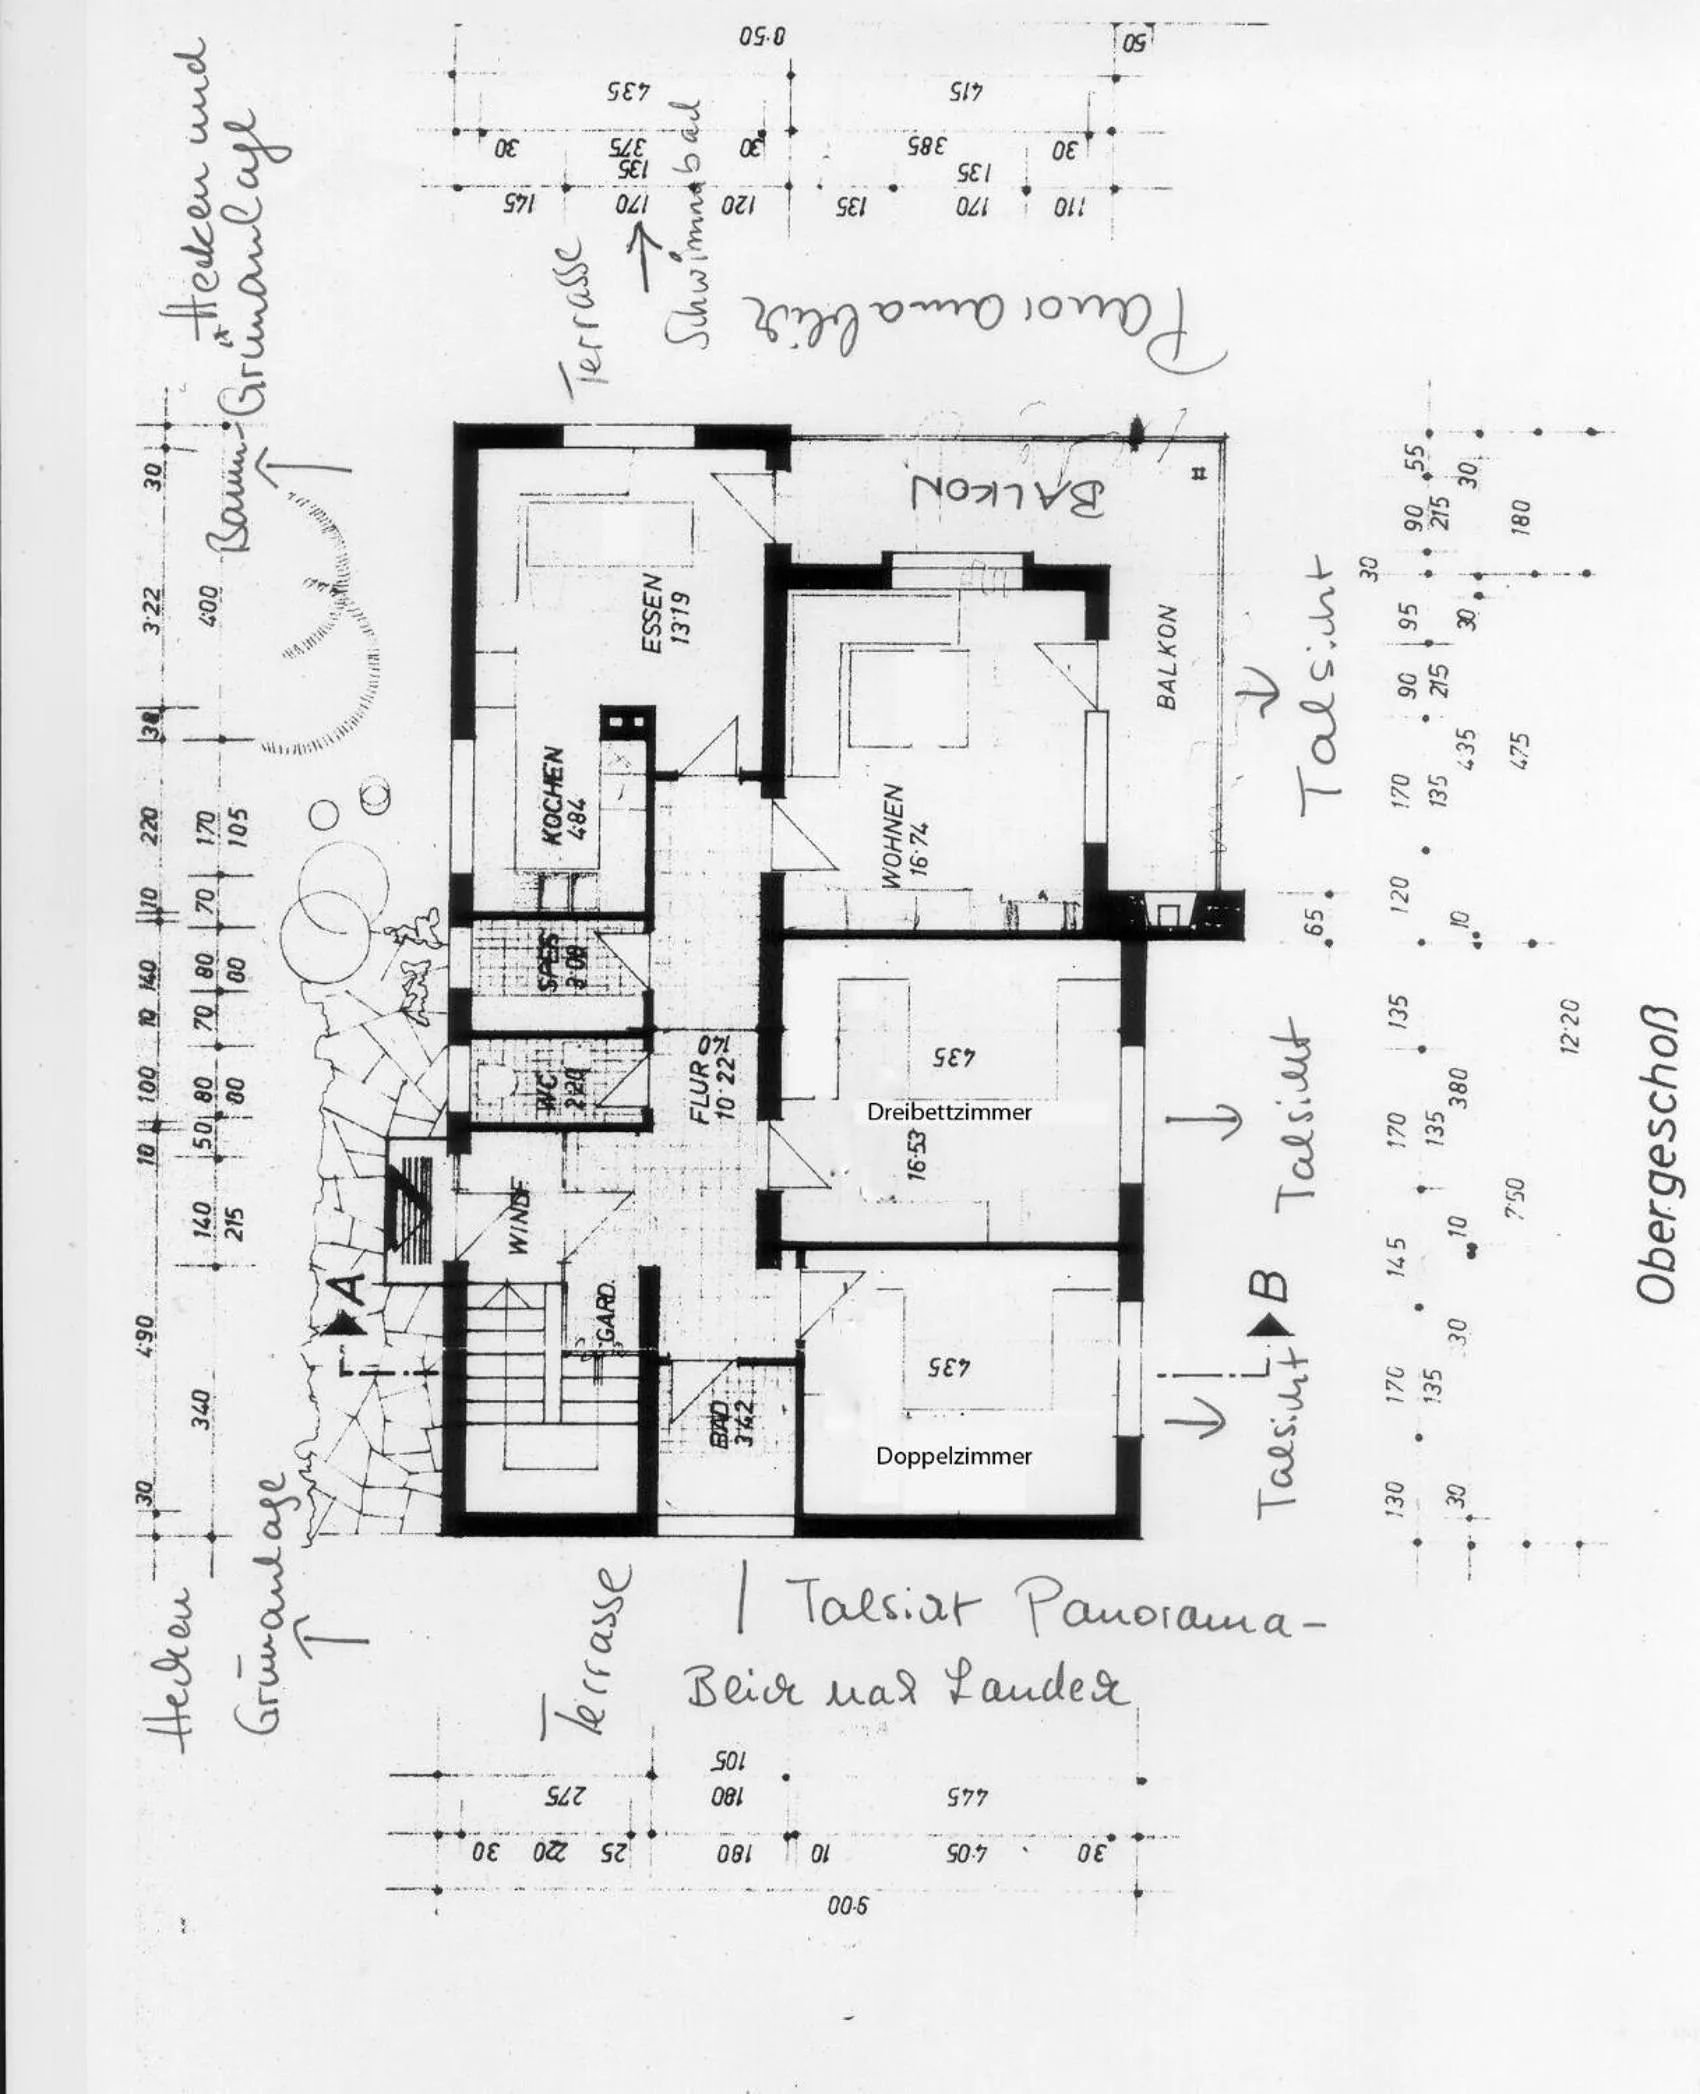 8·50
50
435
415
30
375
30
385
30
135
135
145
170
120
135
170
110
Hecken und
Baum- Grünanlage
Terrasse
Schwimmbad
Panoramablick
30
3·22
38
220
10
140
10
100
10
490
30
400
170
105
70
80
80
70
80
80
50
140
215
340
BALKON
BALKON
ESSEN
13·19
KOCHEN
4·84
WOHNEN
16·74
SPEIS
WC
2·20
FLUR
10·22
140
WINDF.
GARD.
BAD
3·42
435
Dreibettzimmer
16·53
435
Doppelzimmer
A
B
Talsicht
Talsicht
Talsicht
55
30
90
215
180
30
95
30
90
215
435
475
170
135
120
10
65
135
12·20
170
135
380
7·50
145
10
30
170
135
130
30
Obergeschoß
Hecken
Grünanlage
Terrasse
Talsicht Panorama-
Blick nach Landeck
105
275
180
445
30
220
25
180
10
4·05
30
9·00